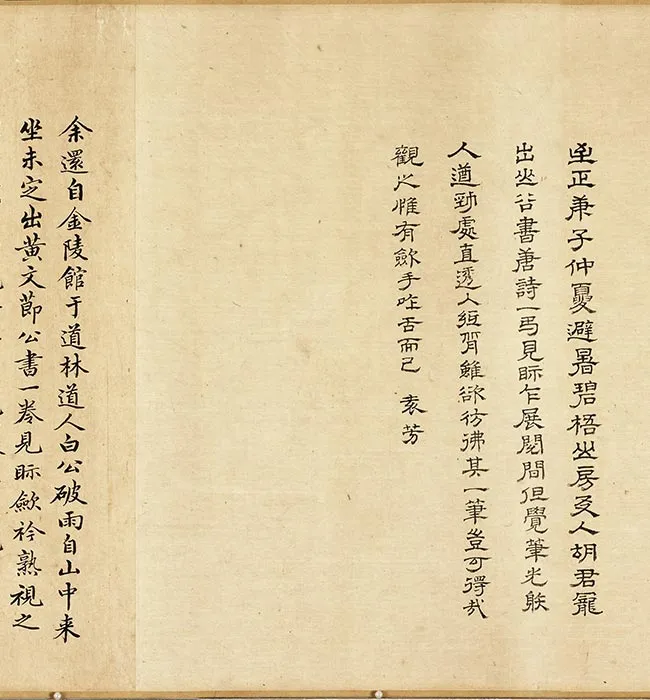 至正庚子仲夏避暑碧梧山房友人胡君寵
出山谷書唐詩一弓見眎乍展閱間但覺筆光䠶
人遒勁處直透人紙背雖欲彷彿其一筆豈可得哉
觀之惟有歛手咋舌而已 袁芳
余還自金陵館于道林道人白公破雨自山中来
坐未定出黃文節公書一卷見眎歛衿熟視之